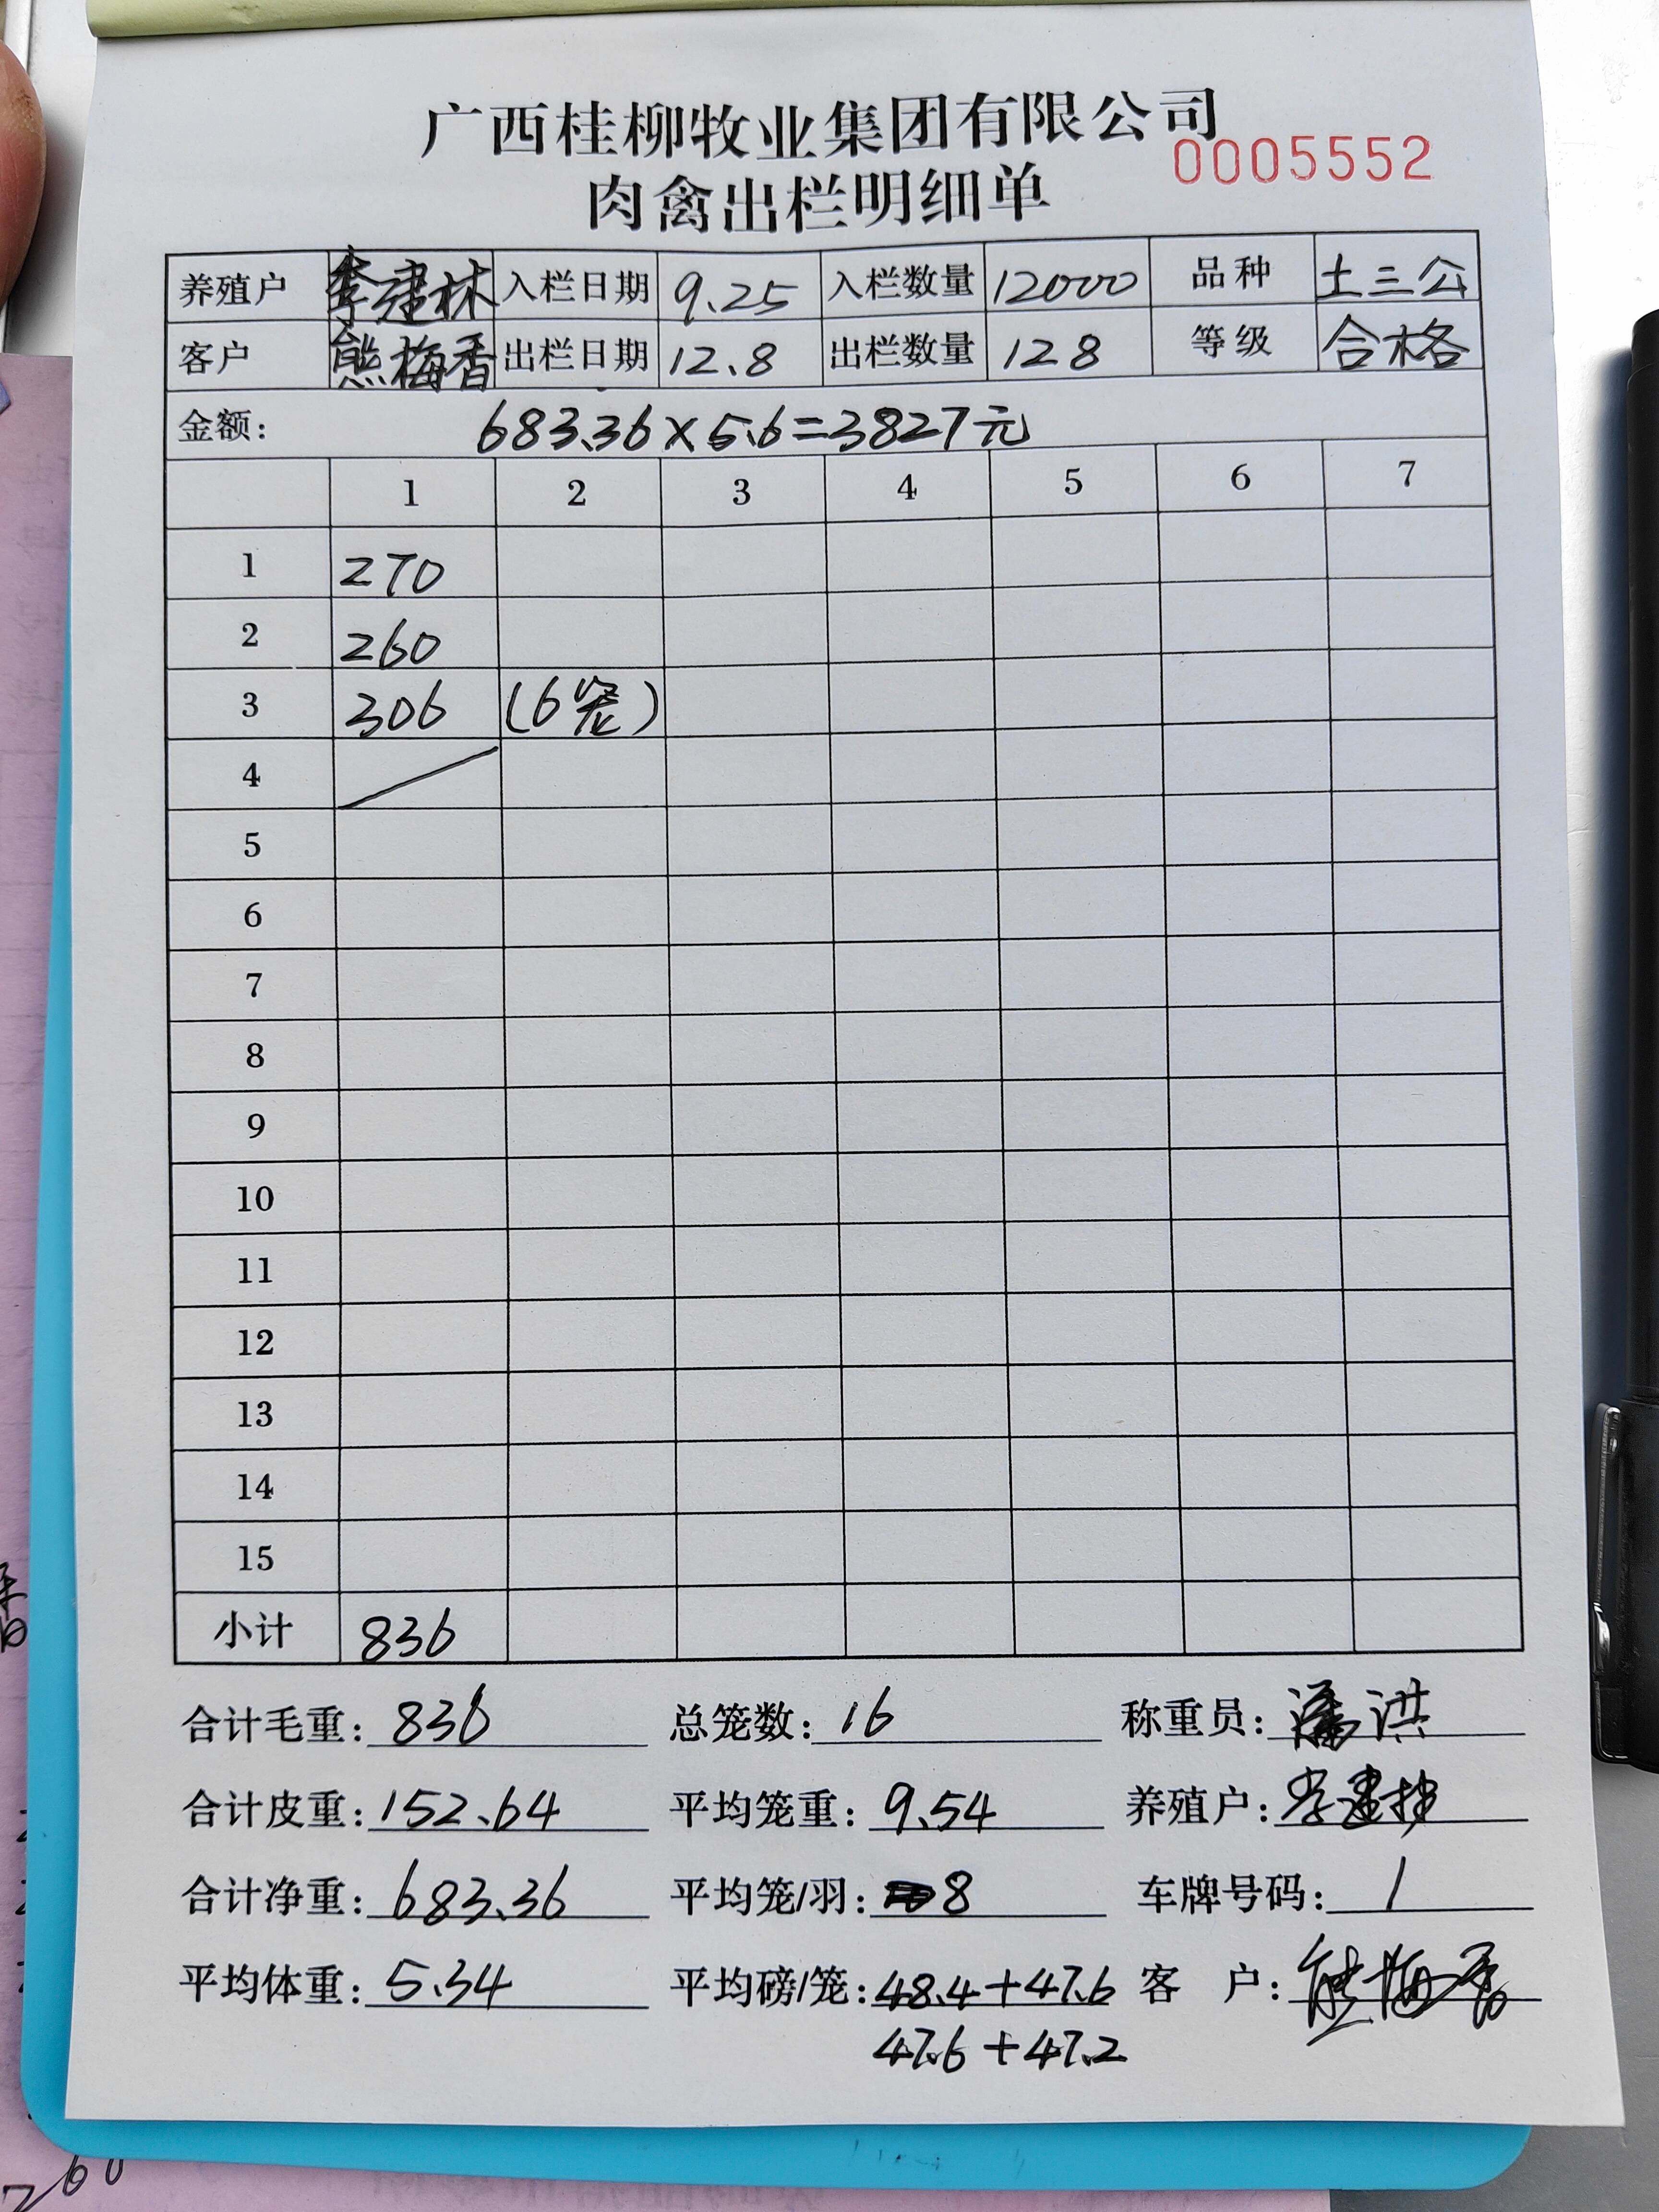 广西桂柳牧业集团有限公司
0005552
肉禽出栏明细单
养殖户 李建林 入栏日期 9.25 入栏数量 12000 品种 土三公
客户 熊梅香 出栏日期 12.8 出栏数量 128 等级 合格
金额: 683.36×5.6=3827元
1 2 3 4 5 6 7
1 270
2 260
3 306 (6笼)
4
5
6
7
8
9
10
11
12
13
14
15
小计 836
合计毛重: 836 总笼数: 16 称重员: 潘洪
合计皮重: 152.64 平均笼重: 9.54 养殖户: 李建林
合计净重: 683.36 平均笼/羽: 8 车牌号码: /
平均体重: 5.34 平均磅/笼: 48.4+47.6 客 户: 熊梅香
47.6+47.2
260